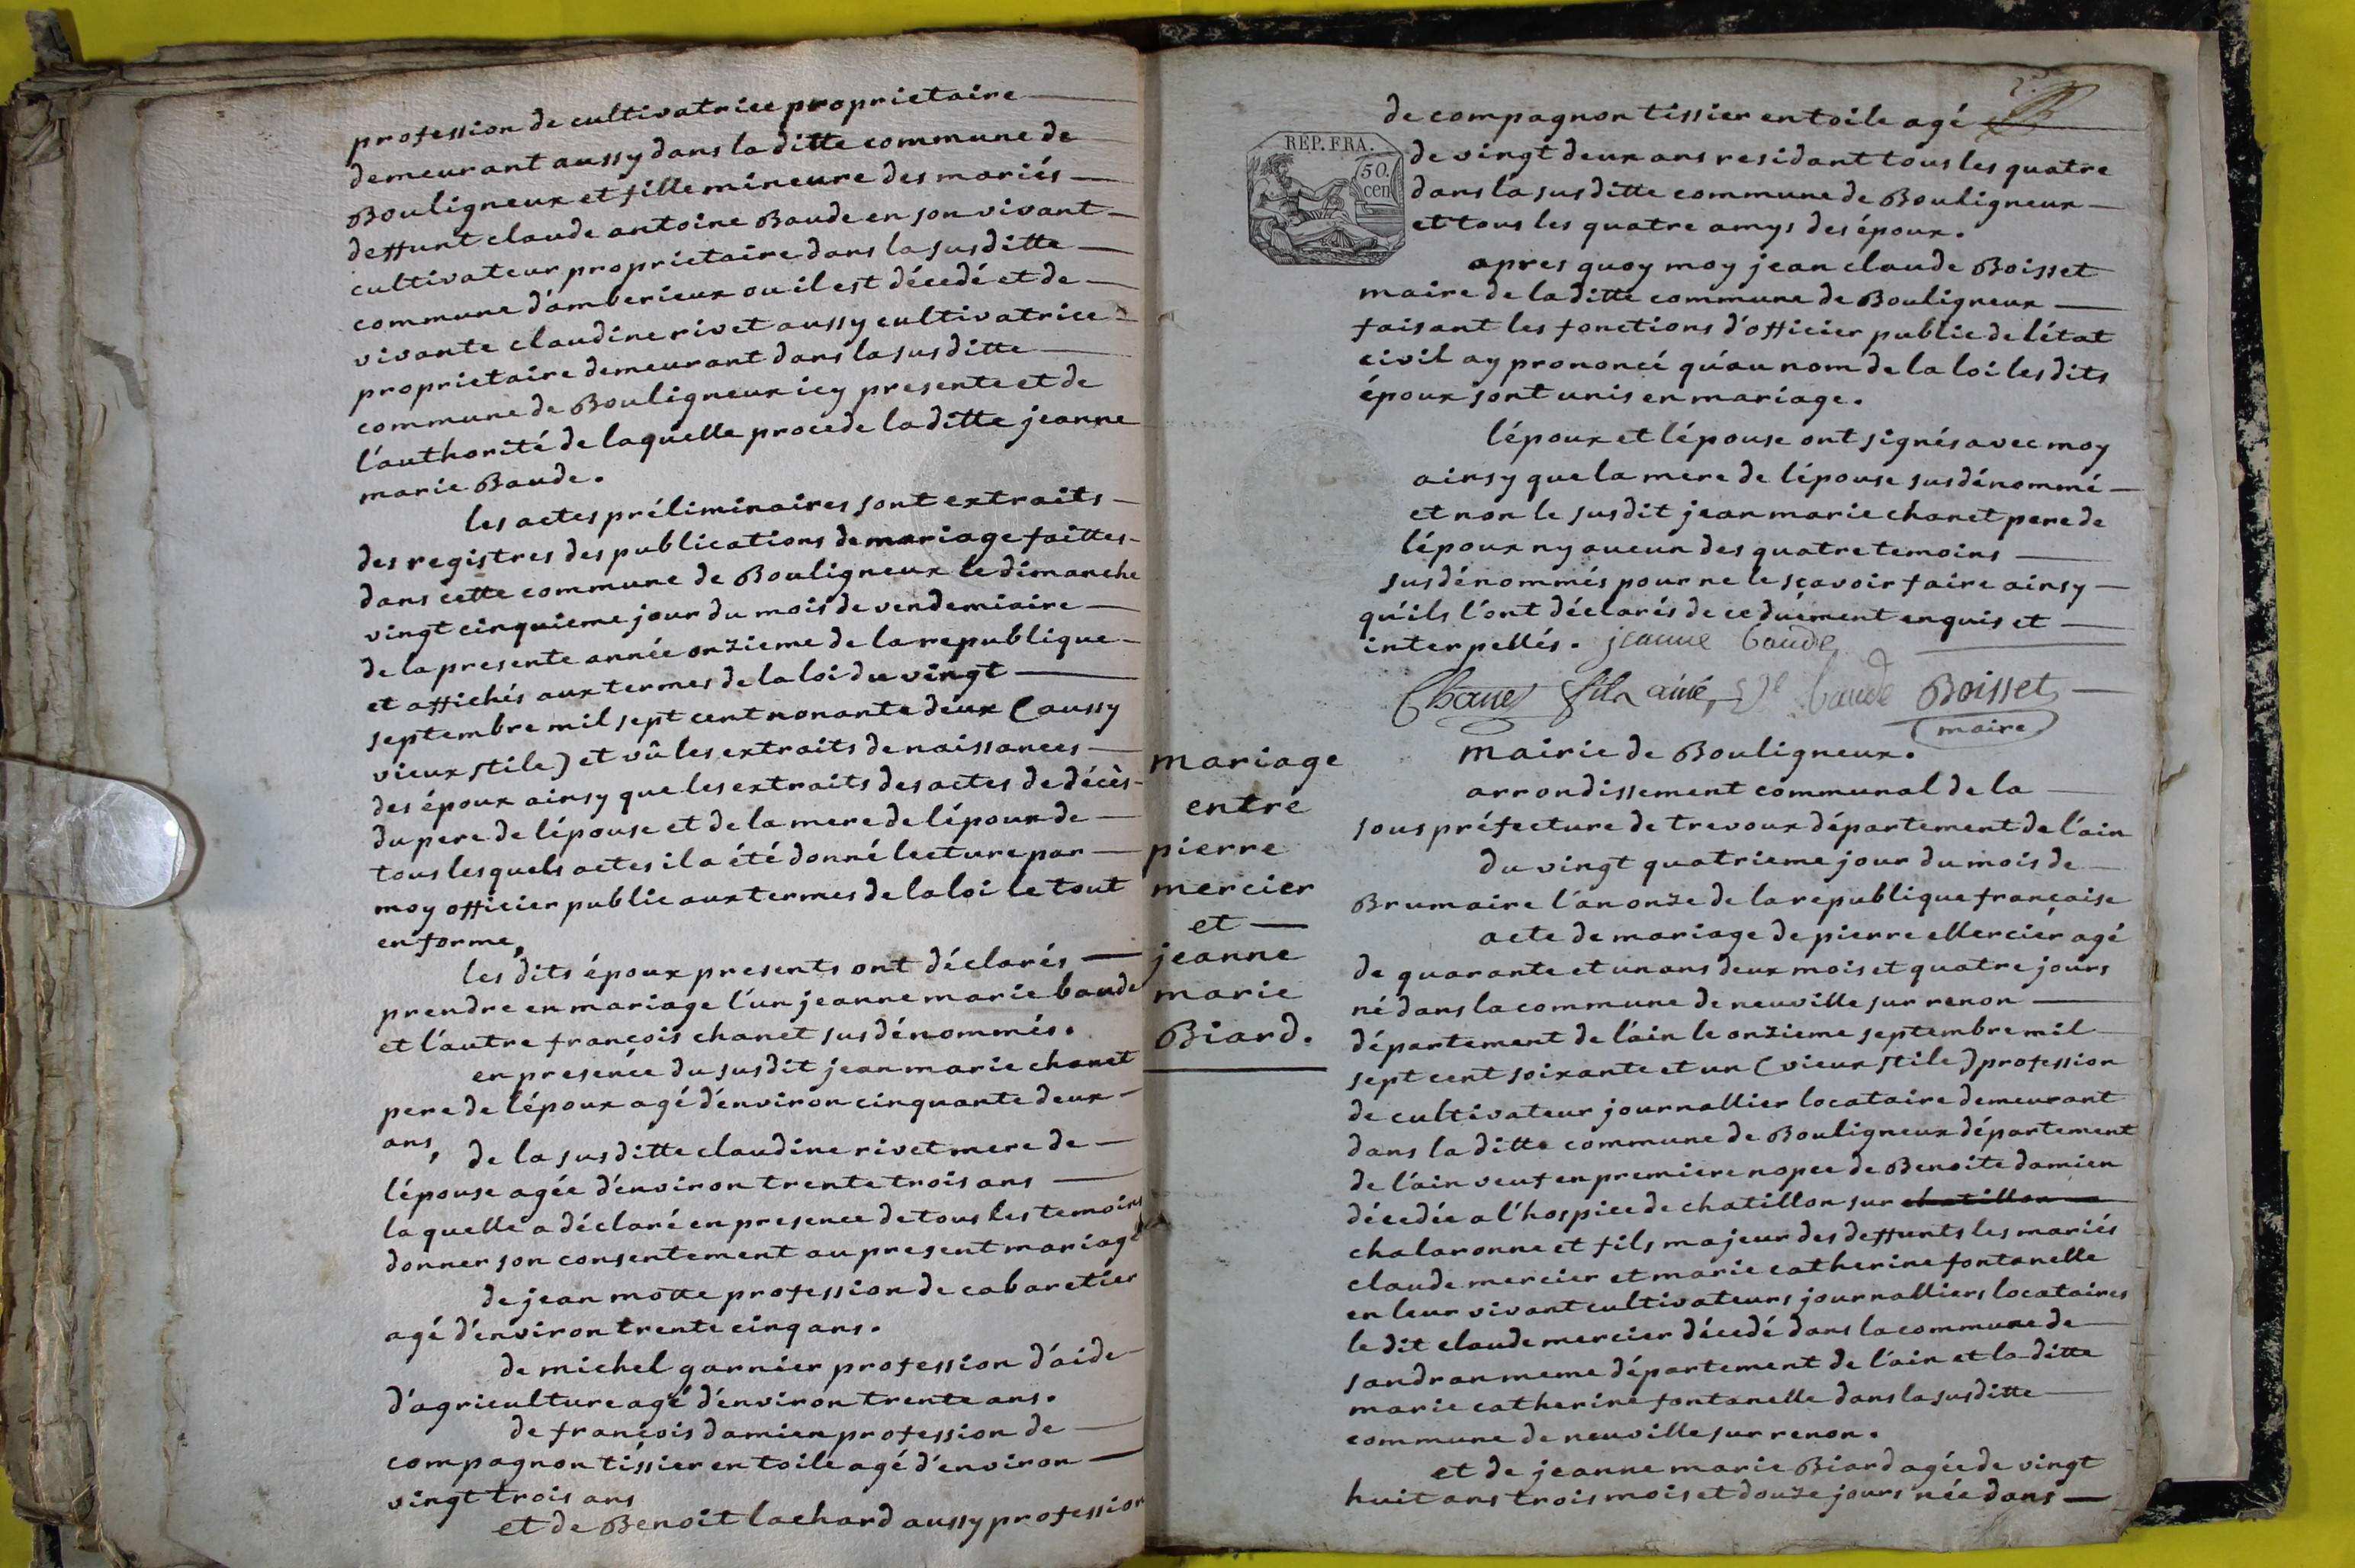 profession de cultivatrice proprietaire
demeurant aussy dans la ditte commune de
Bouligneux et fille mineure des mariés
deffunt claude antoine Baude en son vivant
cultivateur proprietaire dans la susditte
commune d'amberieux ou il est décedé et de
vivante claudine rivet aussy cultivatrice
proprietaire demeurant dans la susditte
commune de Bouligneux icy presente et de
l'authorité de laquelle procede la ditte jeanne
marie Baude.
les actes préliminaires sont extraits
des registres des publications de mariage faittes
dans cette commune de Bouligneux le dimanche
vingt cinquieme jour du mois de vendemiaire
de la presente année onzieme de la republique
et affichés aux termes de la loi du vingt
septembre mil sept cent nonante deux (aussy
vieux stile) et vû les extraits de naissances
des époux ainsy que les extraits des actes de décès
du pere de l'épouse et de la mere de l'époux de
tous lesquels actes il a été donné lecture par
moy officier public aux termes de la loi le tout
en forme,
les dits époux presents ont déclarés
prendre en mariage l'un jeanne marie baude
et l'autre françois chanet susdénommés.
en presence du susdit jean marie chanet
pere de l'époux agé d'environ cinquante deux
ans,
de la susditte claudine rivet mere de
l'épouse agée d'environ trente trois ans
la quelle a déclaré en presence de tous les temoins
donner son consentement au present mariage
de jean motte profession de cabaretier
agé d'environ trente cinq ans.
de michel garnier profession d'aide
d'agriculture agé d'environ trente ans.
de françois damien profession de
compagnon tissier en toile agé d'environ
vingt trois ans
et de Benoit lachard aussy profession
de compagnon tissier en toile agé
REP. FRA.
50.
cen
de vingt deux ans residant tous les quatre
dans la susditte commune de Bouligneux
et tous les quatre amys des époux.
apres quoy moy jean claude Boisset
maire de la ditte commune de Bouligneux
faisant les fonctions d'officier public de l'état
civil ay prononcé qu'au nom de la loi les dits
époux sont unis en mariage.
l'époux et l'épouse ont signés avec moy
ainsy que la mere de l'épouse susdénommé
et non le susdit jean marie chanet pere de
l'époux ny aucun des quatre temoins
susdénommés pour ne le sçavoir faire ainsy
qu'ils l'ont déclarés de ce duëment enquis et
interpellés. jeanne baude
Chanet fils ainé, baude Boisset
maire
mariage
entre
pierre
mercier
et
jeanne
marie
Biard.
mairie de Bouligneux.
arrondissement communal de la
sous préfecture de trevoux département de l'ain
du vingt quatrieme jour du mois de
Brumaire l'an onze de la republique française
acte de mariage de pierre Mercier agé
de quarante et un ans deux mois et quatre jours
né dans la commune de neuville sur renon
département de l'ain le onzieme septembre mil
sept cent soixante et un (vieux stile) profession
de cultivateur journallier locataire demeurant
dans la ditte commune de Bouligneux département
de l'ain veuf en premiere nopce de Benoite damien
décedée a l'hospice de chatillon sur chatillon
chalaronne et fils majeur des deffunts les mariés
claude mercier et marie catherine fontanelle
en leur vivant cultivateurs journalliers locataires
le dit claude mercier décedé dans la commune de
sandran meme département de l'ain et la ditte
marie catherine fontanelle dans la susditte
commune de neuville sur renon.
et de jeanne marie Biard agée de vingt
huit ans trois mois et douze jours née dans